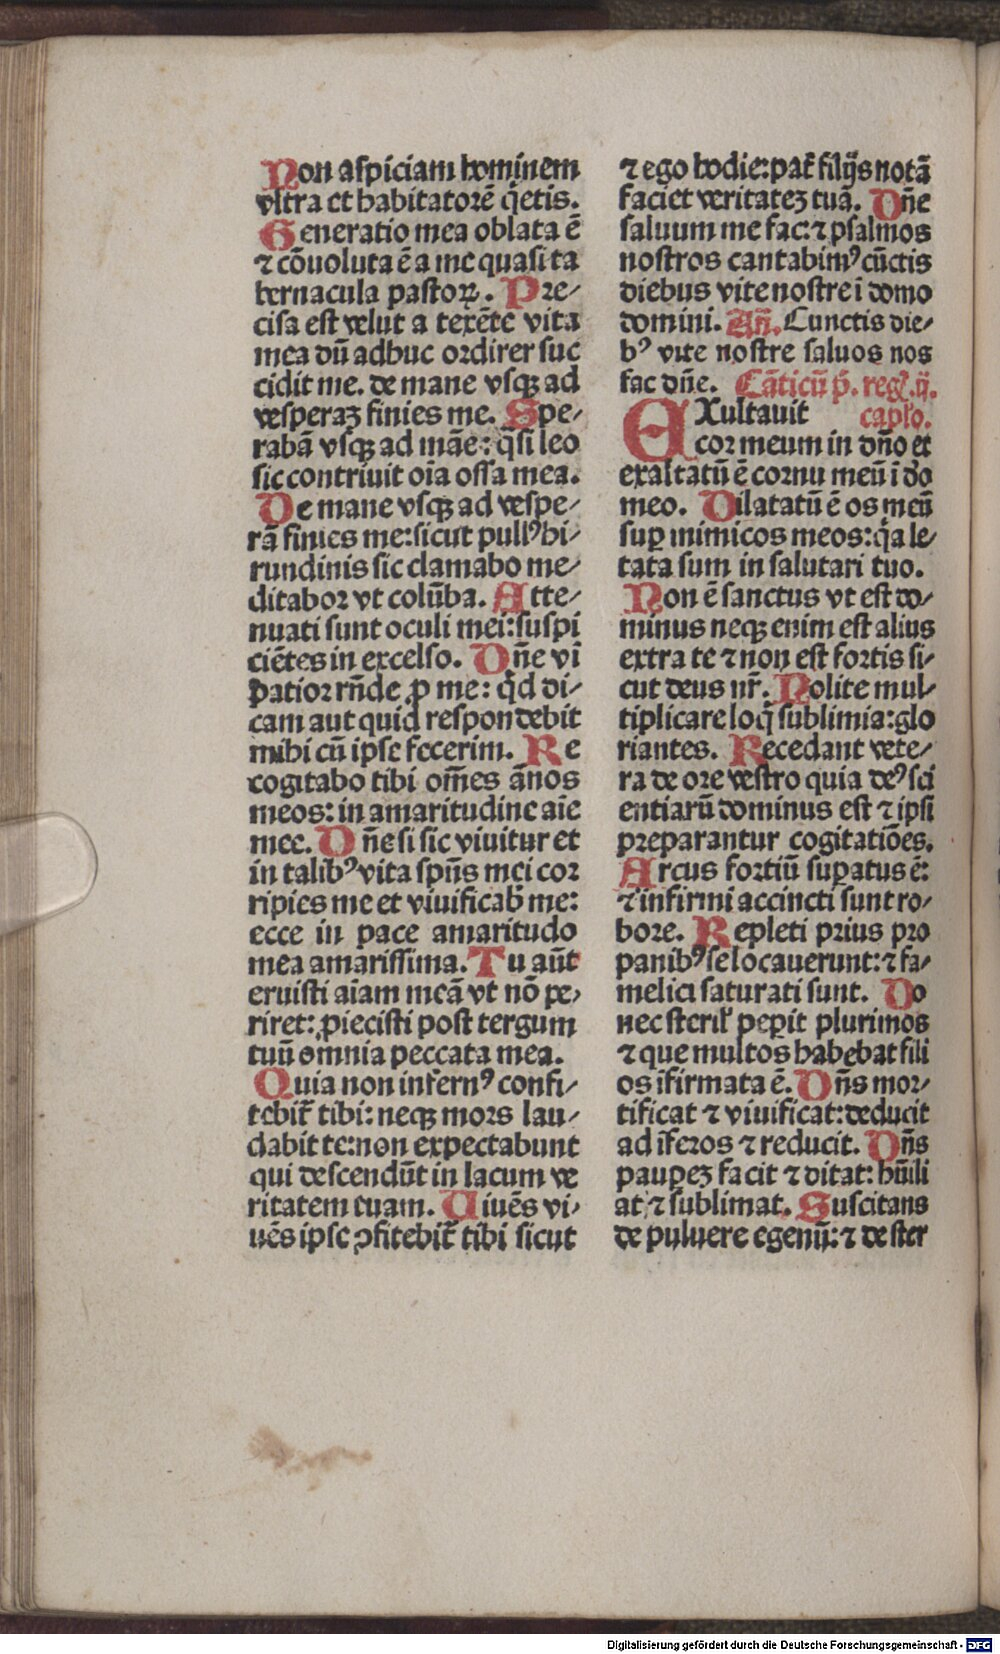 Non aspiciam hominem
vltra et habitatorē q̄etis.
Generatio mea oblata ē
⁊ cōuoluta ē a me quasi ta
bernacula pastoꝝ. Pre⸗
cisa est velut a texēte vita
mea dū adhuc ordirer suc
cidit me. de mane vsqꝫ ad
vesperaꝫ finies me. Spe⸗
rabā vsqꝫ ad māe: q̄si leo
sic contriuit oīa ossa mea.
De mane vsqꝫ ad vespe⸗
rā finies me: sicut pullꝰ hi⸗
rundinis sic clamabo me⸗
ditabor vt colūba. Atte⸗
nuati sunt oculi mei: suspi
ciētes in excelso. Dn̄e vī
patior rn̄de ꝓ me: q̄d di⸗
cam aut quid respondebit
mihi cū ipse fecerim. Re
cogitabo tibi om̄es ānos
meos: in amaritudine aīe
mee. Dn̄e si sic viuitur et
in talibꝰ vita spūs mei cor
ripies me et viuificab̄ me:
ecce in pace amaritudo
mea amarissima. Tu aūt
eruisti aīam meā vt nō pe⸗
riret: ꝓiecisti post tergum
tuū omnia peccata mea.
Quia non infernꝰ confi⸗
tebit̄ tibi: neqꝫ mors lau⸗
dabit te: non expectabunt
qui descendūt in lacum ve
ritatem tuam. Viuēs vi⸗
uēs ipse ꝯfitebit̄ tibi sicut
⁊ ego hodie: pat̄ filijs notā
faciet veritateꝫ tuā. Dn̄e
saluum me fac: ⁊ psalmos
nostros cantabimꝰ cūctis
diebus vite nostre ī domo
domini. An̄. Cunctis die⸗
bꝰ vite nostre saluos nos
fac dn̄e. Cāticū p̄. reḡ. ij.
EXultauit caplo.
cor meum in dn̄o et
exaltatū ē cornu meū ī do
meo. Dilatatū ē os meū
suꝑ inimicos meos: q̄a le⸗
tata sum in salutari tuo.
Non ē sanctus vt est do⸗
minus neqꝫ enim est alius
extra te ⁊ non est fortis si⸗
cut deus nr̄. Nolite mul⸗
tiplicare loq̄ sublimia: glo
riantes. Recedant vete⸗
ra de ore vestro quia deꝰ sci
entiarū dominus est ⁊ ipsi
preparantur cogitatiōes.
Arcus fortiū suꝑatus ē:
⁊ infirmi accincti sunt ro⸗
bore. Repleti prius pro
panibꝰ se locauerunt: ⁊ fa⸗
melici saturati sunt. Do
nec steril̄ peꝑit plurimos
⁊ que multos habebat fili
os īfirmata ē. Dn̄s mor⸗
tificat ⁊ viuificat: deducit
ad īferos ⁊ reducit. Dn̄s
pauꝑeꝫ facit ⁊ ditat: hūili
at ⁊ sublimat. Suscitans
de puluere egenū: ⁊ de ster
Digitalisierung gefördert durch die Deutsche Forschungsgemeinschaft - DFG